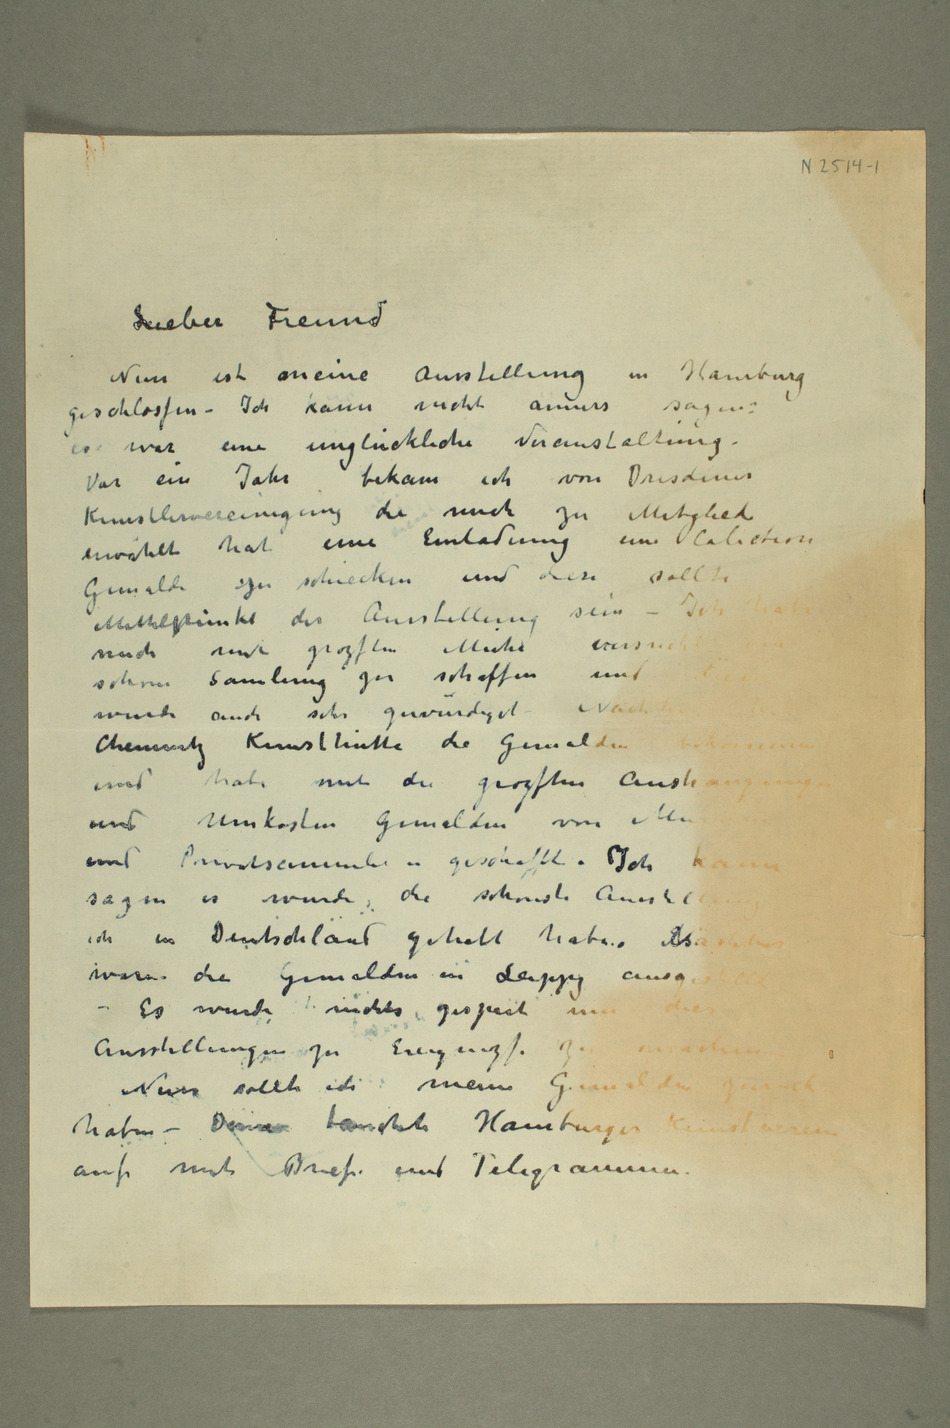 N 2514-1
Lieber Freund
Nun ist meine Ausstellung in Hamburg
geschlossen – Ich kann nicht anners sagen:
es war eine unglückliche Veranstaltung.
Vor ein Jahr bekam ich von Dresdener
Kunstlervereinigung die mich zu Mitglied
erwählt hat eine Einladung eine Colection
Gemälde zu schiecken und diese sollte
Mittelpunkt der Ausstellung sein – Ich
mich mit grozften Muhe
schöne Samlung zu schaffen und
wurde auch sehr gewürdiget
Chemnitz Kunsthütte die Gemalden bekommen
und habe mit die grozften
und Umkosten Gemälden von
und Privatsammler geschafft. Ich kann
sagen es wurde die schönste
ich in Deutschland gehabt habe.
waren die Gemälden in Leipzig
– Es wurde nichts gespart um diese
Ausstellungen zu zu machen
Nun sollte ich meine Gemälde zurück
haben – tauchte Hamburger Kunstverein
auf mit Briefe und Telegrammen.